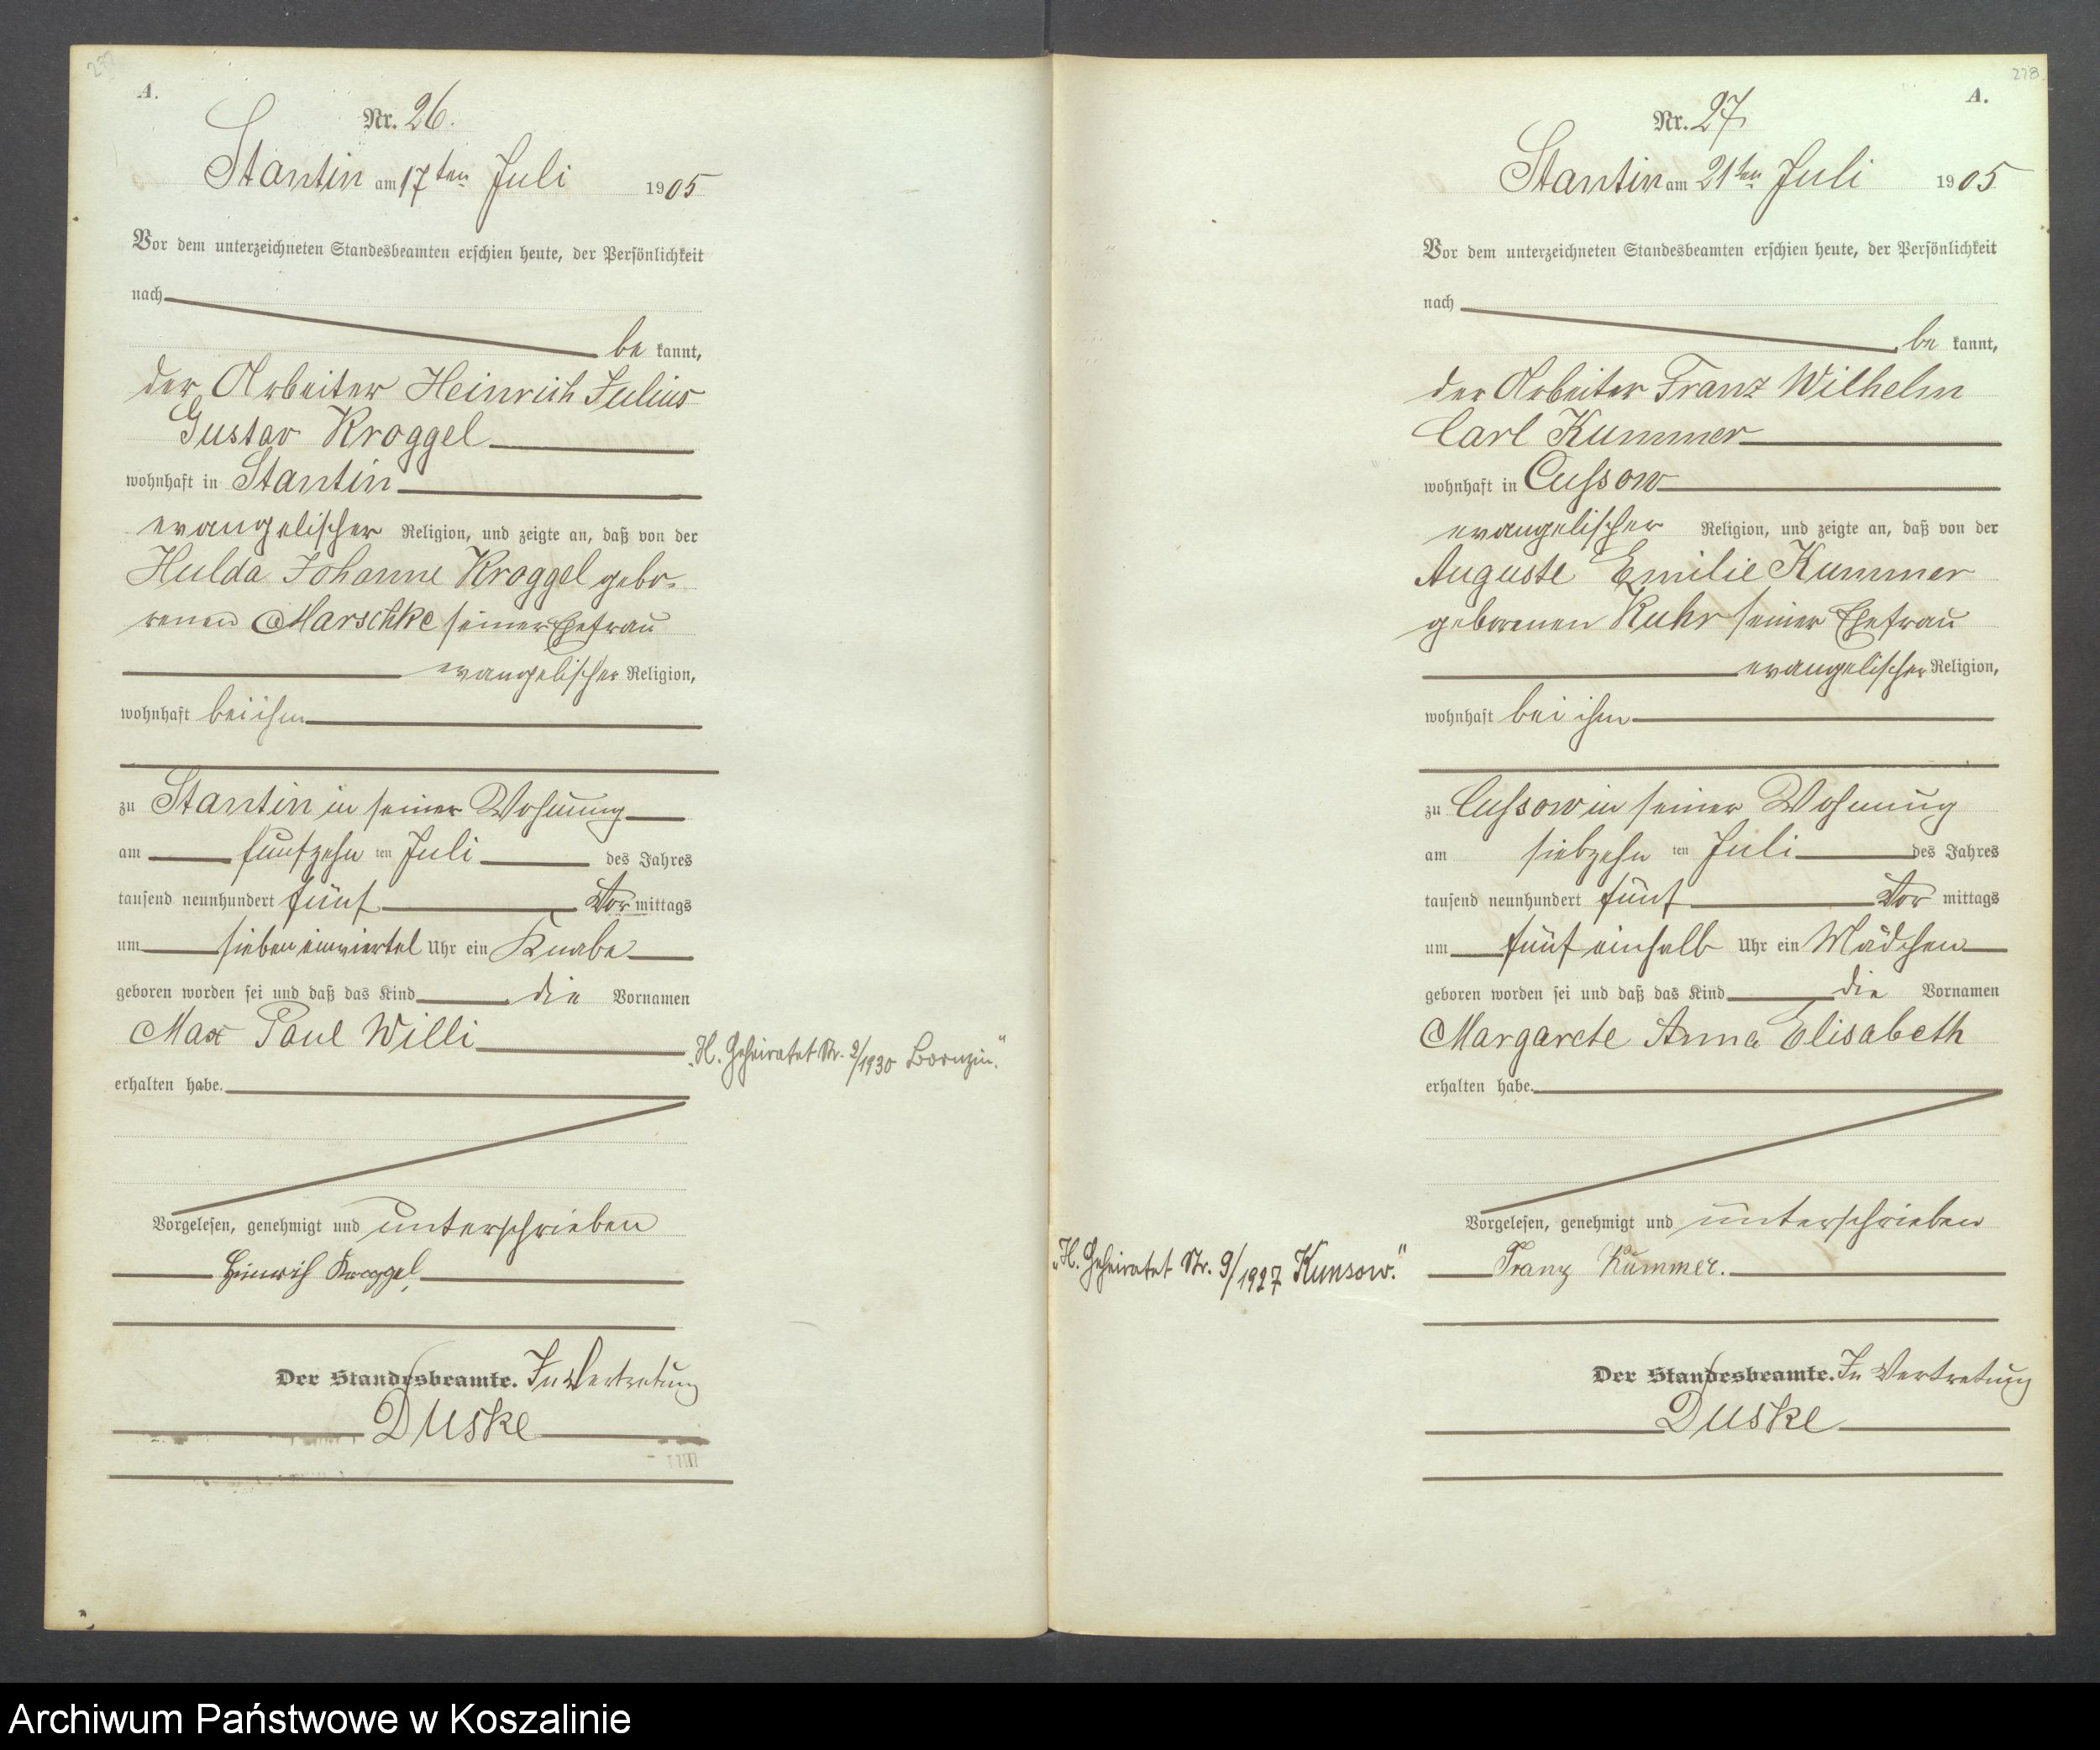 A.
Nr. 26.
Stantin am 17ten Juli 1905
Vor dem unterzeichneten Standesbeamten erschien heute, der Persönlichkeit
nach
be kannt,
der Arbeiter Heinrich Julius
Gustav Kroggel
wohnhaft in Stantin
evangelischer Religion, und zeigte an, daß von der
Hulda Johanne Kroggel gebo-
renen Marschke seiner Ehefrau
evangelischer Religion,
wohnhaft bei ihm
zu Stantin in seiner Wohnung
am fünfzehn ten Juli des Jahres
tausend neunhundert fünf Vor mittags
um sieben einviertel Uhr ein Knabe
geboren worden sei und daß das Kind die Vornamen
Max Paul Willi
"H. Geheiratet Nr. 2/1930 Bornzin."
erhalten habe.
Vorgelesen, genehmigt und unterschrieben
Heinrich Kroggel
Der Standesbeamte. In Vertretung
Duske
228
A.
Nr. 27
Stantin am 21ten Juli 1905
Vor dem unterzeichneten Standesbeamten erschien heute, der Persönlichkeit
nach
be kannt,
der Arbeiter Franz Wilhelm
Carl Kummer
wohnhaft in Cussow
evangelischer Religion, und zeigte an, daß von der
Auguste Emilie Kummer
geborenen Kuhr seiner Ehefrau
evangelischer Religion,
wohnhaft bei ihm
zu Cussow in seiner Wohnung
am siebzehn ten Juli des Jahres
tausend neunhundert fünf Vor mittags
um fünf einhalb Uhr ein Mädchen
geboren worden sei und daß das Kind die Vornamen
Margarete Anna Elisabeth
erhalten habe.
Vorgelesen, genehmigt und unterschrieben
"H. Geheiratet Nr. 9/1927 Kunsow."
Franz Kummer.
Der Standesbeamte. In Vertretung
Duske
Archiwum Państwowe w Koszalinie